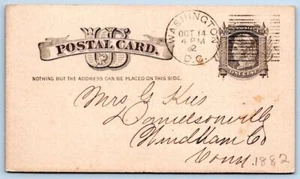 U S
POSTAL CARD.
WASHINGTON
OCT 14
4 PM
82
D.C.
NOTHING BUT THE ADDRESS CAN BE PLACED ON THIS SIDE.
Mrs G Kies
Danielsonville
Windham Co
Conn
1882